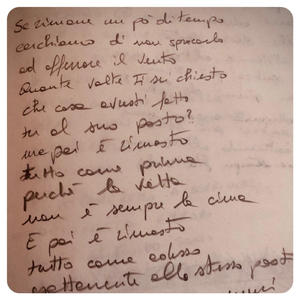 Se rimane un pò di tempo
cerchiamo di non sprecarlo
ed afferrare il vento
Quante volte ti sei chiesto
che cosa avresti fatto
tu al suo posto?
ma poi è rimasto
tutto come prima
perché la vetta
non è sempre la cima
E poi è rimasto
tutto come adesso
esattamente allo stesso posto